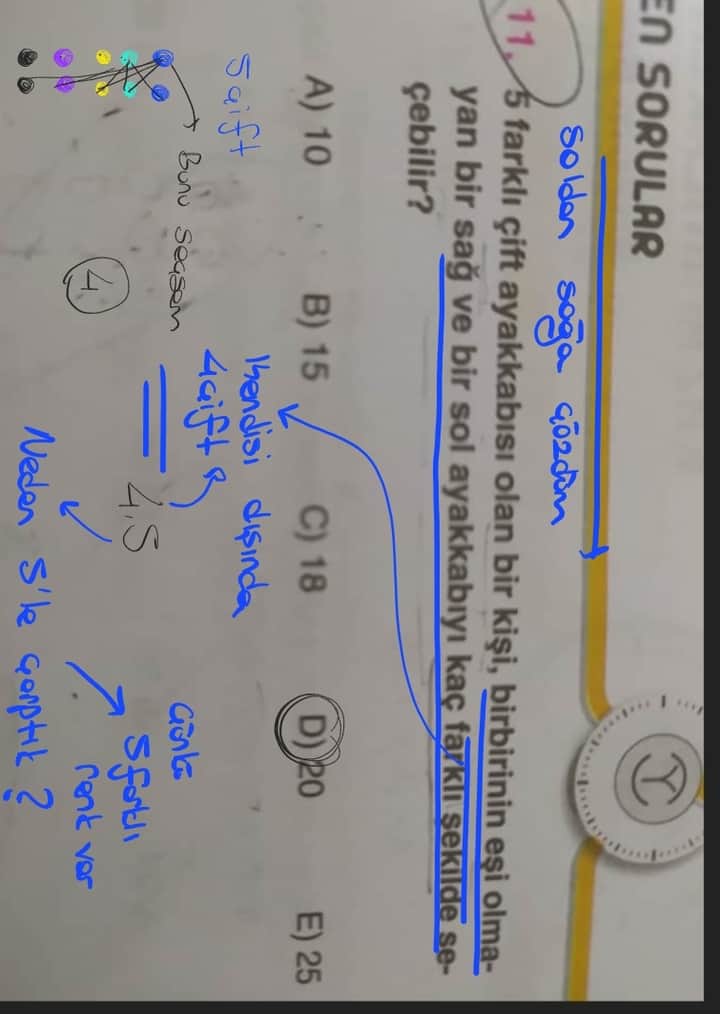 EN SORULAR
soldan sağa çözdüm
11. 5 farklı çift ayakkabısı olan bir kişi, birbirinin eşi olma-
yan bir sağ ve bir sol ayakkabıyı kaç farklı şekilde se-
çebilir?
A) 10 B) 15 C) 18 D) 20 E) 25
5 çift
Bunu seçsem
4
kendisi dışında
4 çift
4.5
Neden 5'le çarptık ?
Çünkü
5 farklı
renk var